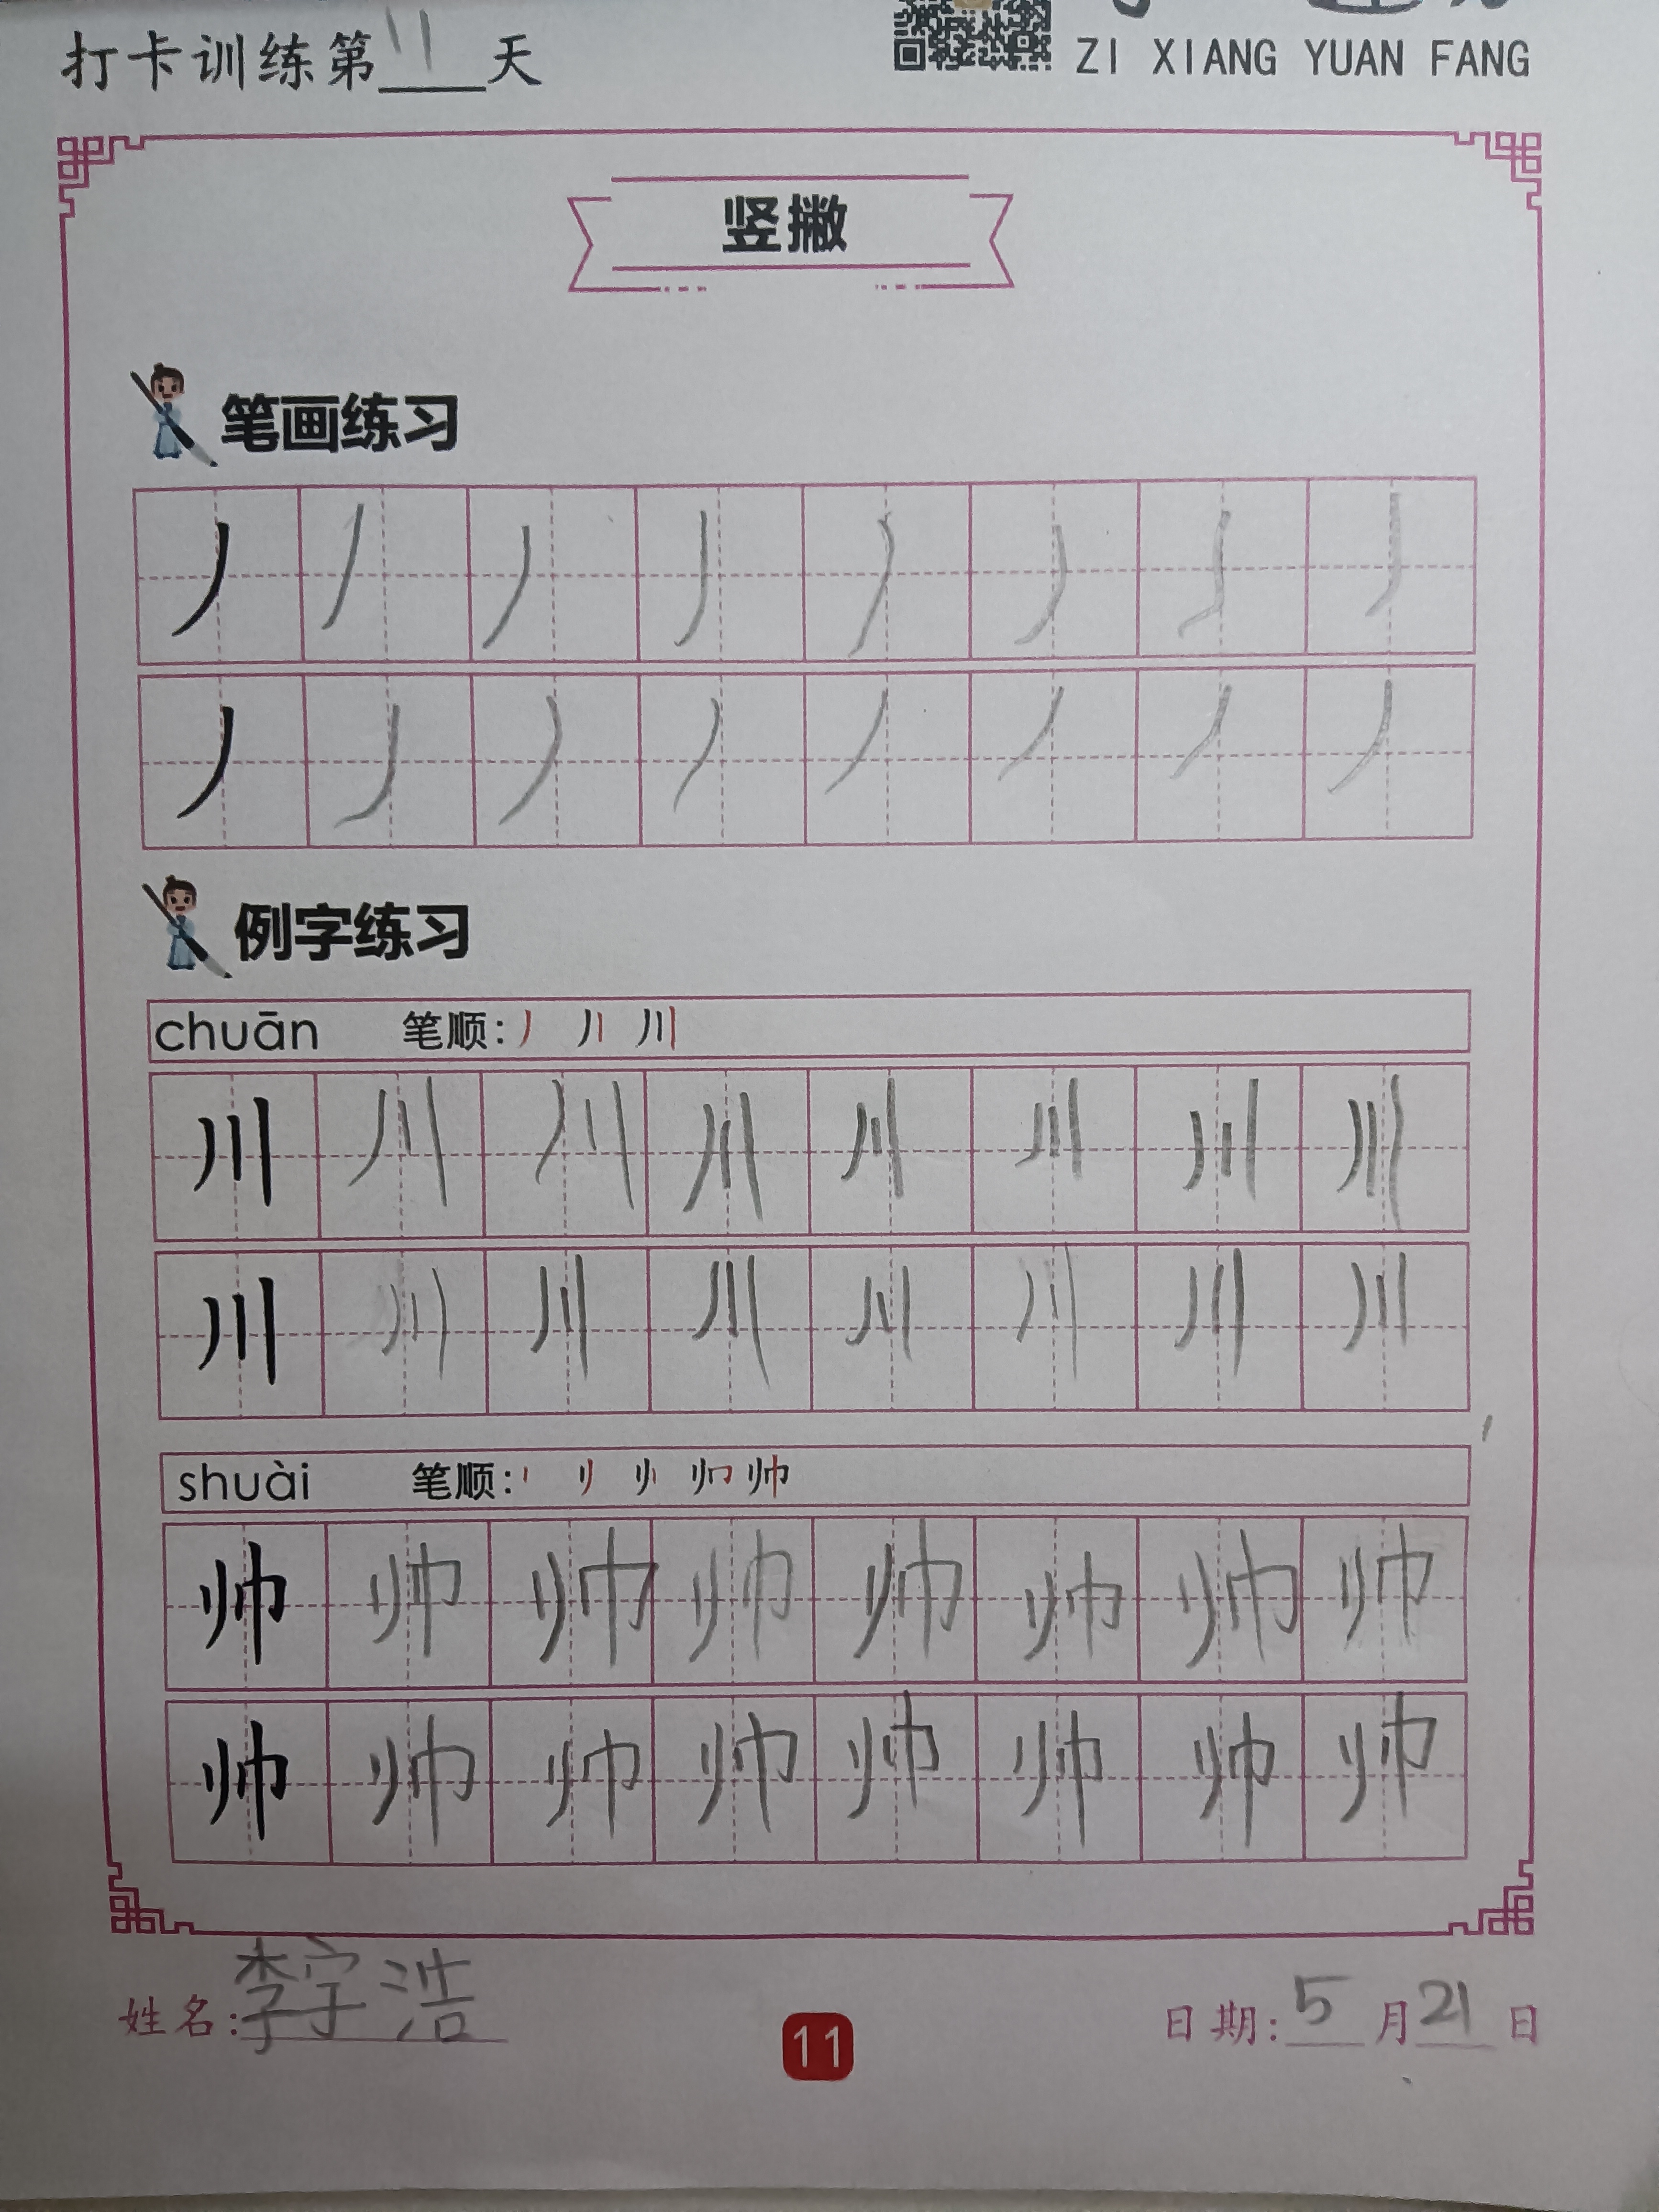 打卡训练第11天
ZI XIANG YUAN FANG
竖撇
笔画练习
丿丿丿丿丿丿丿丿
丿丿丿丿丿丿丿丿
例字练习
chuān 笔顺: 丿 丿丨 川
川川川川川川川川
川川川川川川川川
shuài 笔顺: 帅
帅帅帅帅帅帅帅帅
帅帅帅帅帅帅帅帅
姓名:李宇浩
11
日期:5月21日